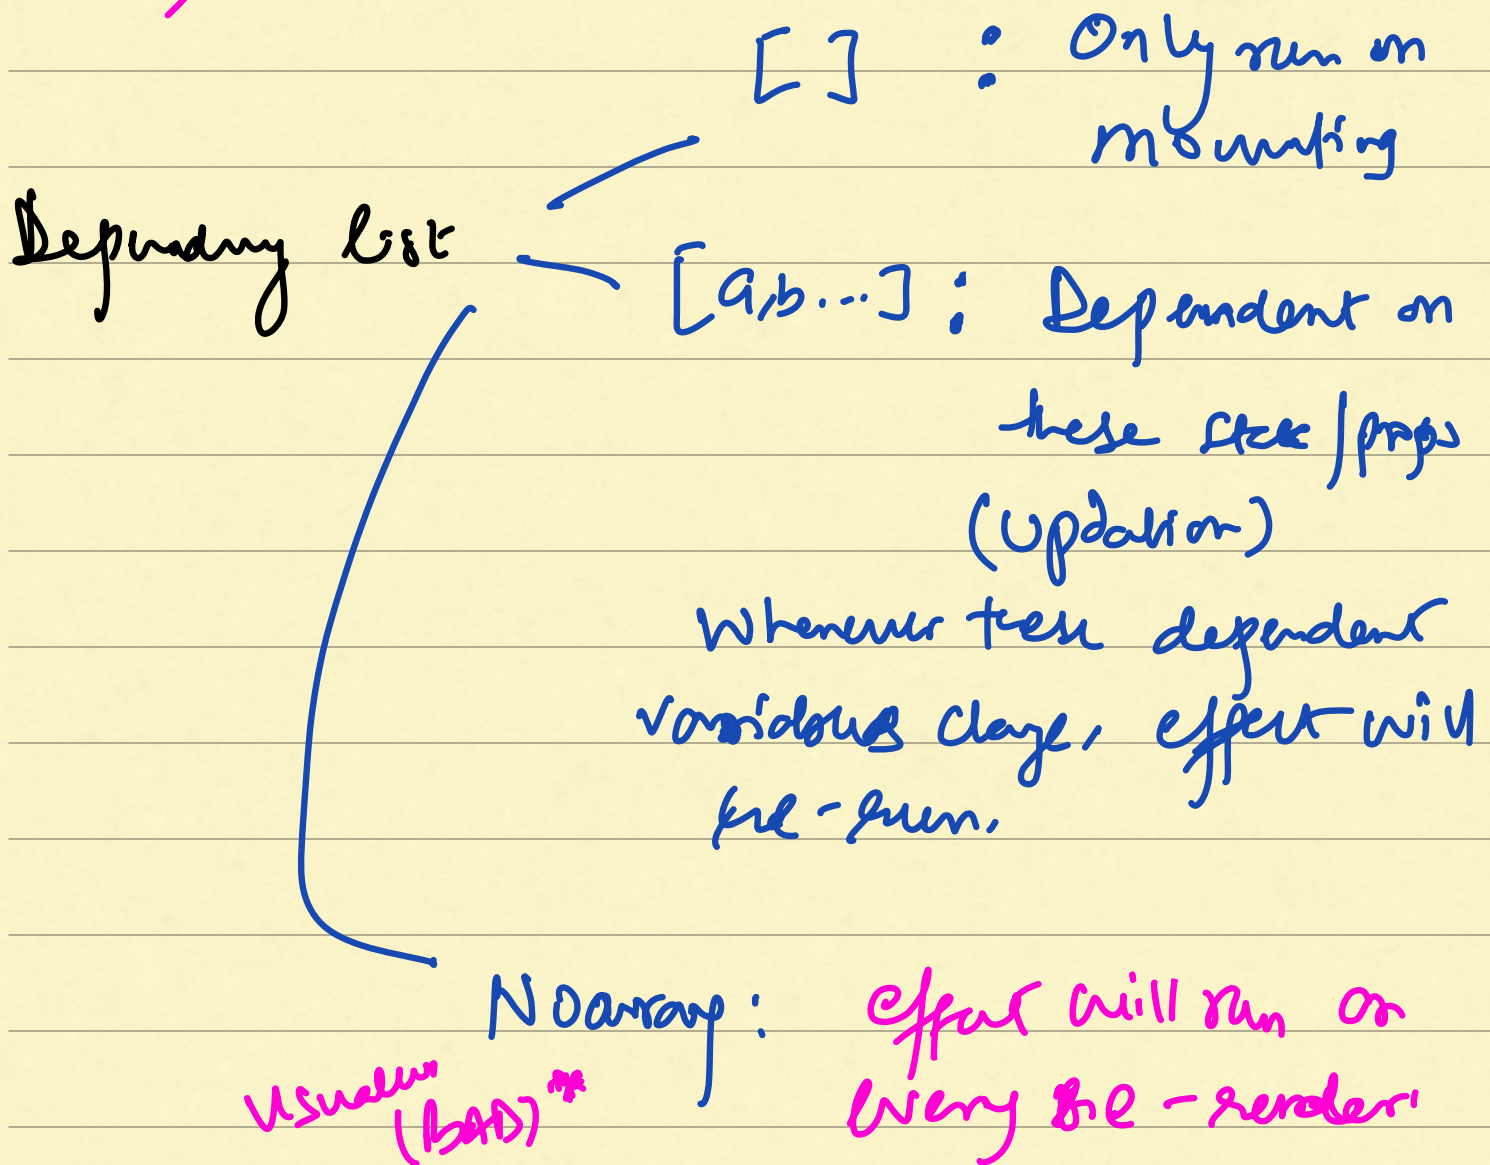 [ ] : Only run on
mounting
Dependency list
[a,b...] : Dependent on
these state/props
(updation)
Whenever these dependent
variables change, effect will
re-run.
No array: effect will run on
every re-render
Usually
(BAD)**